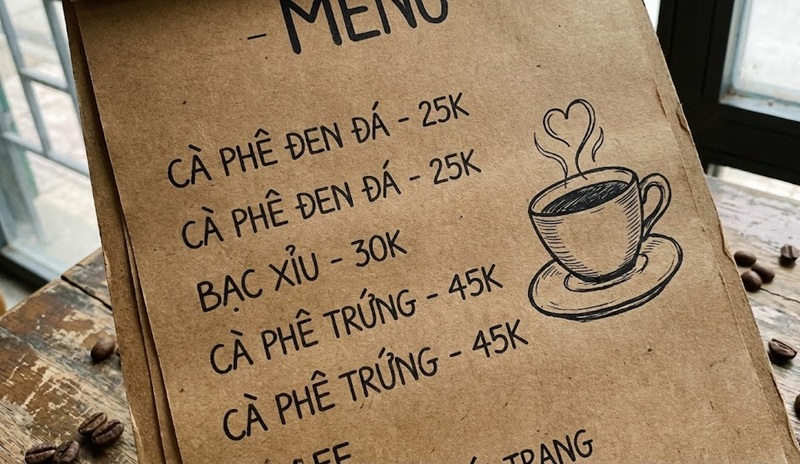 - MENU
CÀ PHÊ ĐEN ĐÁ - 25K
CÀ PHÊ ĐEN ĐÁ - 25K
BẠC XỈU - 30K
CÀ PHÊ TRỨNG - 45K
CÀ PHÊ TRỨNG - 45K
TRANG